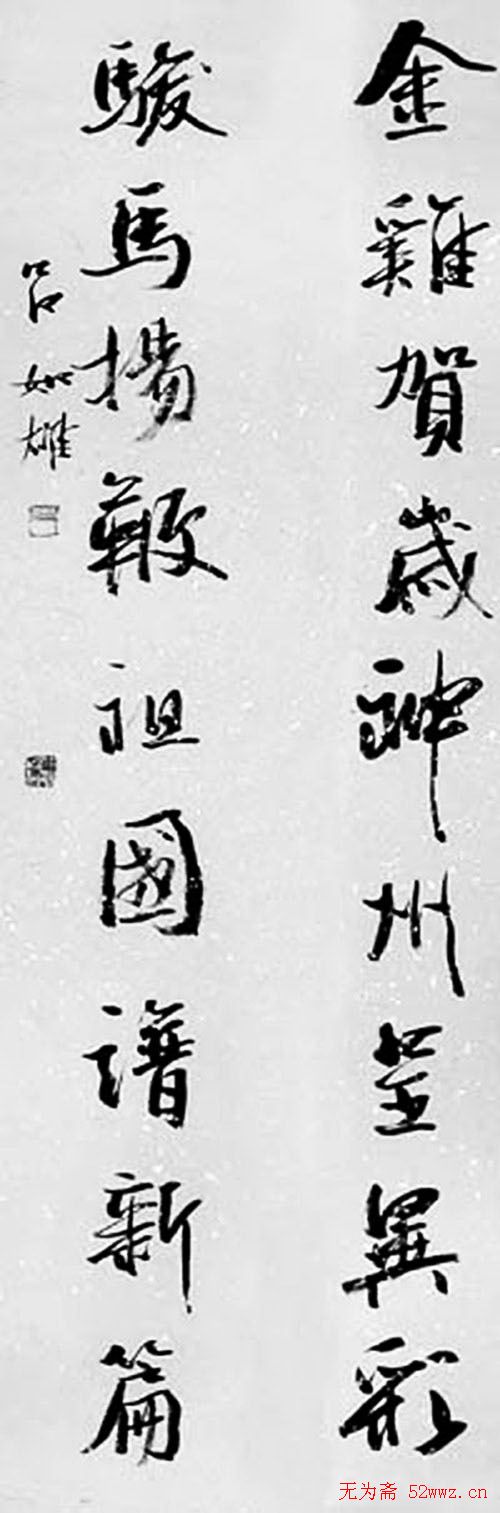 金雞賀歲神州呈異彩
駿馬揚鞭祖國譜新篇
吕如雄
无为斋 52wwz.cn